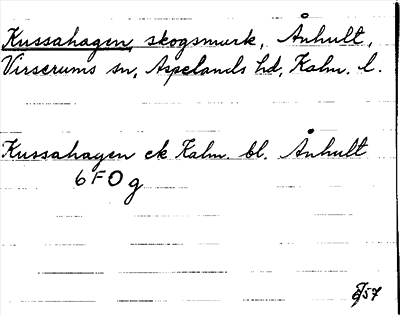 Kussahagen, skogsmark, Ånhult,
Virserums sn, Aspelands hd, Kalm. l.
Kussahagen ek Kalm. bl. Ånhult
6 F O g